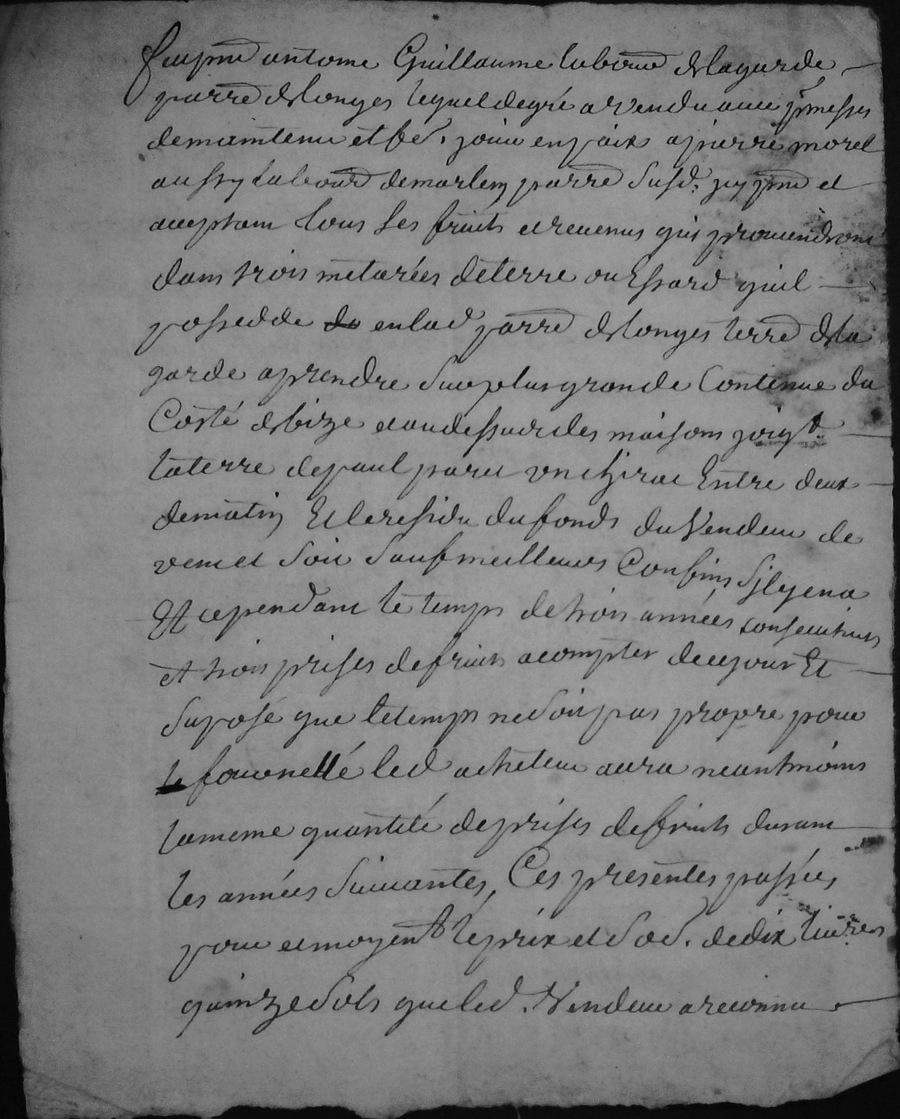 fut pnt antoine Guillaume labour de lagarde
parre de longes lequel de gré a vendu avec pmesses
de maintenir et fe. jouir en paix a pierre morel
aussy labour de marlen parre susd. icy pnt et
acceptant tous les fruits et revenus qui proviendront
dans trois metarées de terre ou Essard quil
possedde en lad parre de longes terre de la
garde a prendre sur plus grande Contenue du
Costé de bize et au dessur des maisons joigt.
la terre de paul paret un chirat Entre deux
de matin Et le residu du fonds du Vendeur de
vent et soir sauf meilleurs Confins sil yena
Et cependant le temps de trois années consecutives
et trois prises de fruits a compter de ce jour Et
suposé que le temps ne soit pas propre pour
le fournellé led acheteur aura neantmoins
la meme quantité de prises de fruits durant
les années suivantes, Ces presentes passées
pour et moyent le prix et so. de dix livres
quinze sols que led. Vendeur a reconnu